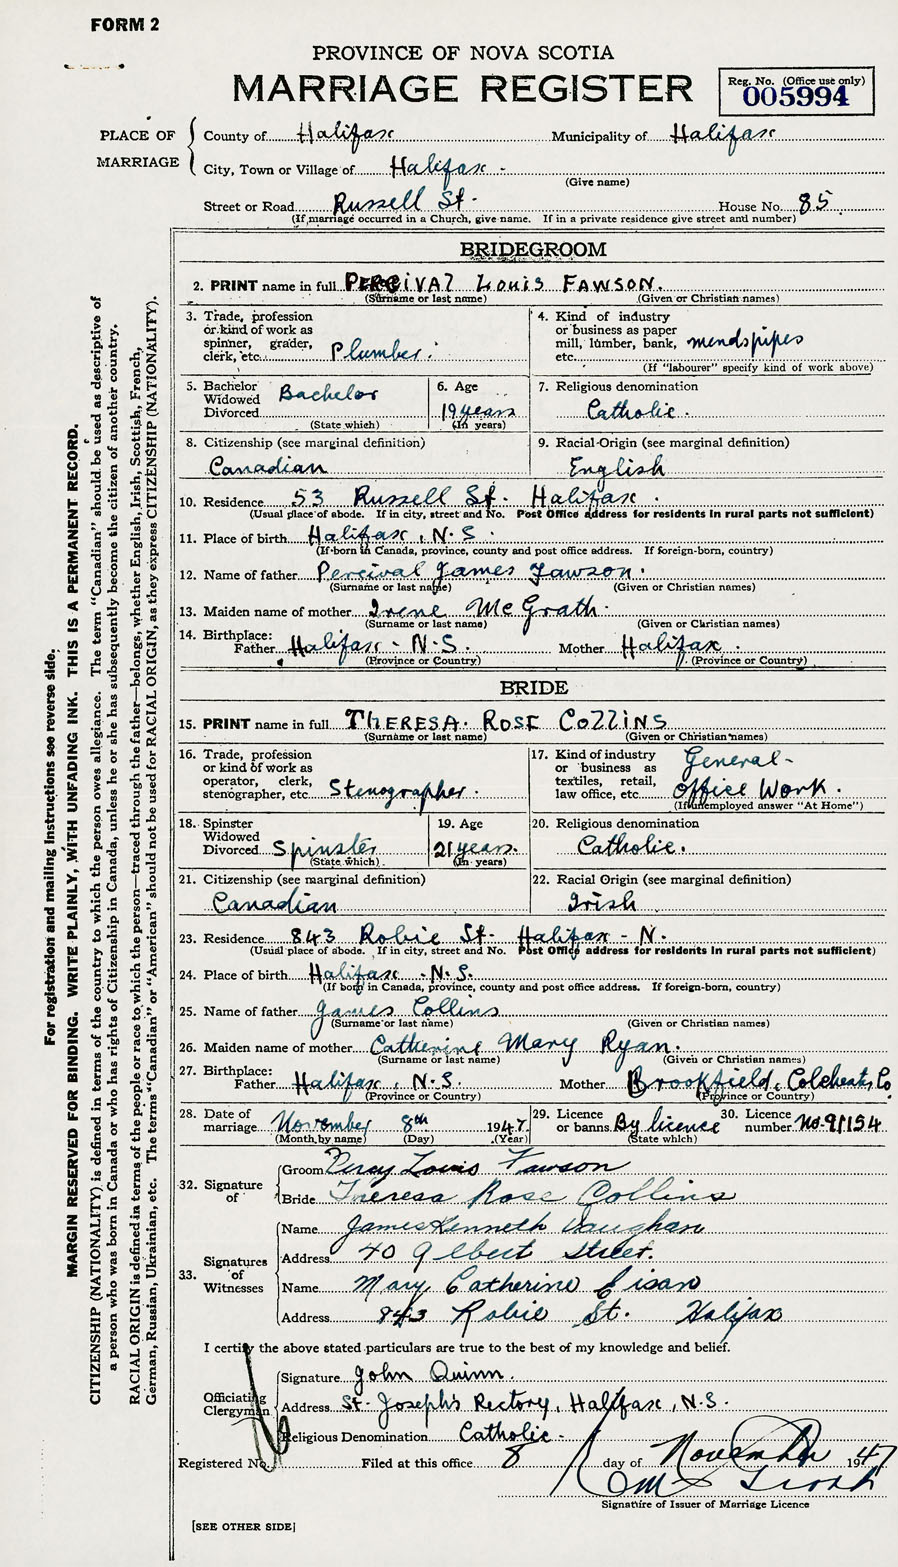 FORM 2
PROVINCE OF NOVA SCOTIA
MARRIAGE REGISTER
Reg. No. (Office use only)
005994
PLACE OF MARRIAGE
County of Halifax Municipality of Halifax
City, Town or Village of Halifax -
(Give name)
Street or Road Russell St. House No. 85
(If marriage occurred in a Church, give name. If in a private residence give street and number)
BRIDEGROOM
2. PRINT name in full PERCIVAL LOUIS FAWSON.
(Surname or last name) (Given or Christian names)
3. Trade, profession or kind of work as spinner, grader, clerk, etc. Plumber.
4. Kind of industry or business as paper mill, lumber, bank, etc. mendspipes
(If "labourer" specify kind of work above)
5. Bachelor Widowed Divorced Bachelor
(State which)
6. Age 19 years
(In years)
7. Religious denomination Catholic.
8. Citizenship (see marginal definition) Canadian
9. Racial Origin (see marginal definition) English
10. Residence 53 Russell St. Halifax.
(Usual place of abode. If in city, street and No. Post Office address for residents in rural parts not sufficient)
11. Place of birth Halifax, N.S.
(If born in Canada, province, county and post office address. If foreign-born, country)
12. Name of father Percival James Fawson.
(Surname or last name) (Given or Christian names)
13. Maiden name of mother Irene McGrath.
(Surname or last name) (Given or Christian names)
14. Birthplace: Father Halifax - N.S. Mother Halifax.
(Province or Country) (Province or Country)
BRIDE
15. PRINT name in full THERESA. ROSE COLLINS
(Surname or last name) (Given or Christian names)
16. Trade, profession or kind of work as operator, clerk, stenographer, etc. Stenographer.
17. Kind of industry or business as textiles, retail, law office, etc. General - office Work.
(If unemployed answer "At Home")
18. Spinster Widowed Divorced Spinster
(State which)
19. Age 21 years.
(In years)
20. Religious denomination Catholic.
21. Citizenship (see marginal definition) Canadian
22. Racial Origin (see marginal definition) Irish
23. Residence 843 Robie St. Halifax - N.
(Usual place of abode. If in city, street and No. Post Office address for residents in rural parts not sufficient)
24. Place of birth Halifax - N.S.
(If born in Canada, province, county and post office address. If foreign-born, country)
25. Name of father James Collins
(Surname or last name) (Given or Christian names)
26. Maiden name of mother Catherine Mary Ryan.
(Surname or last name) (Given or Christian names)
27. Birthplace: Father Halifax, N.S. Mother Brookfield, Colchester Co.
(Province or Country) (Province or Country)
28. Date of marriage November 8th 1947
(Month by name) (Day) (Year)
29. Licence or banns By licence
(State which)
30. Licence number No. 91154
32. Signature of
Groom Percy Louis Fawson
Bride Theresa Rose Collins
33. Signatures of Witnesses
Name James Kenneth Vaughan
Address 40 Street.
Name Mary Catherine
Address 843 Robie St. Halifax
I certify the above stated particulars are true to the best of my knowledge and belief.
Officiating Clergyman
Signature John Quinn.
Address St. Joseph's Rectory, Halifax, N.S.
Religious Denomination Catholic -
Registered No. Filed at this office 8 day of November 1947
Signature of Issuer of Marriage Licence
[SEE OTHER SIDE]
For registration and mailing instructions see reverse side.
MARGIN RESERVED FOR BINDING. WRITE PLAINLY, WITH UNFADING INK. THIS IS A PERMANENT RECORD.
CITIZENSHIP (NATIONALITY) is defined in terms of the country to which the person owes allegiance. The term "Canadian" should be used as descriptive of
a person who was born in Canada or who has rights of Citizenship in Canada, unless he or she has subsequently become the citizen of another country.
RACIAL ORIGIN is defined in terms of the people or race to which the person—traced through the father—belongs, whether English, Irish, Scottish, French,
German, Russian, Ukrainian, etc. The terms "Canadian" or "American" should not be used for RACIAL ORIGIN, as they express CITIZENSHIP (NATIONALITY).